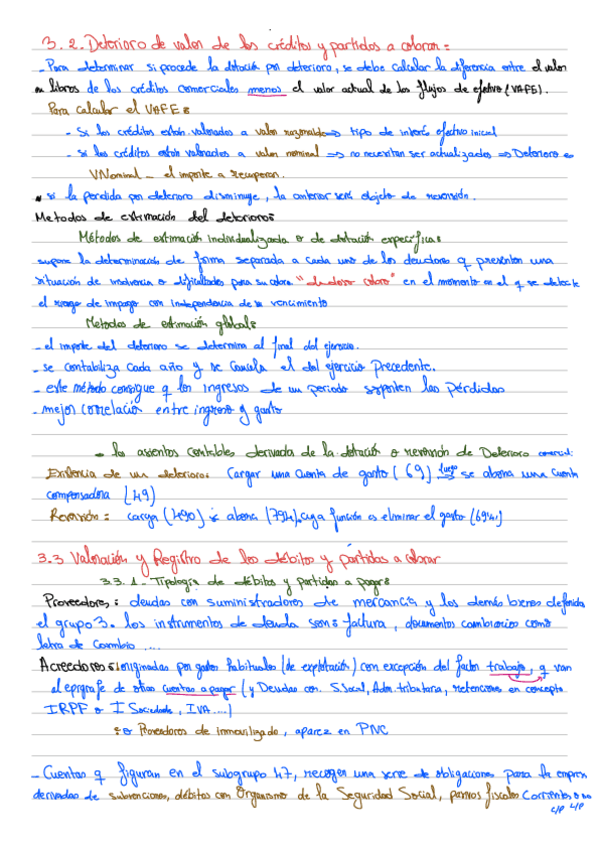 3.2. Deterioro de valor de los créditos y partidas a cobrar:
- Para determinar si procede la dotación por deterioro, se debe calcular la diferencia entre el valor
en libros de los créditos comerciales menos el valor actual de los flujos de efectivo (VAFE).
Para calcular el VAFE:
- Si los créditos están valorados a valor razonable => tipo de interés efectivo inicial
- si los créditos están valorados a valor nominal => no necesitan ser actualizados => Deterioro =
VNominal - el importe a recuperar.
si la perdida por deterioro disminuye, la anterior será objeto de reversión.
Metodos de estimación del deterioro:
Métodos de estimación individualizada o de dotación específica:
supone la determinación de forma separada a cada uno de los deudores q presenten una
situación de insolvencia o dificultades para su cobro "de dudoso cobro" en el momento en el q se detecte
el riesgo de impago con independencia de su vencimiento
Metodos de estimación global:
- el importe del deterioro se determina al final del ejercicio.
- se contabiliza cada año y se cancela el del ejercicio Precedente.
- este método consigue q los ingresos de un periodo soporten las Pérdidas
- mejor correlación entre ingreso y gasto
los asientos contables derivada de la dotación o reversión de Deterioro comercial:
Existencia de un deterioro: Cargar una cuenta de gasto (69) luego => se abona una cuenta
compensadora (49)
Reversión: carga (490) y abona (794), cuya función es eliminar el gasto (694)
3.3 Valoración y Registro de los débitos y partidas a cobrar
3.3.1 - Tipología de débitos y partidas a pagar:
Proveedores: deudas con suministradores de mercancía y los demás bienes definidos
el grupo 3. los instrumentos de deuda son: factura, documentos cambiarios como
letra de Cambio ....
Acreedores: originadas por gastos habituales (de explotación) con excepción del factor trabajo, q van
al epígrafe de otras cuentas a pagar (y Deudas con. S.Social, Adm. tributaria, retenciones en concepto
IRPF o I Sociedades, IVA ....)
Proveedores de inmovilizado, aparez en PNC
- Cuentas q figuran en el subgrupo 47, recogen una serie de obligaciones para la empresa
derivadas de subvenciones, débitos con Organismo de la Seguridad Social, pasivos fiscales Corrientes o no
c/p l/p